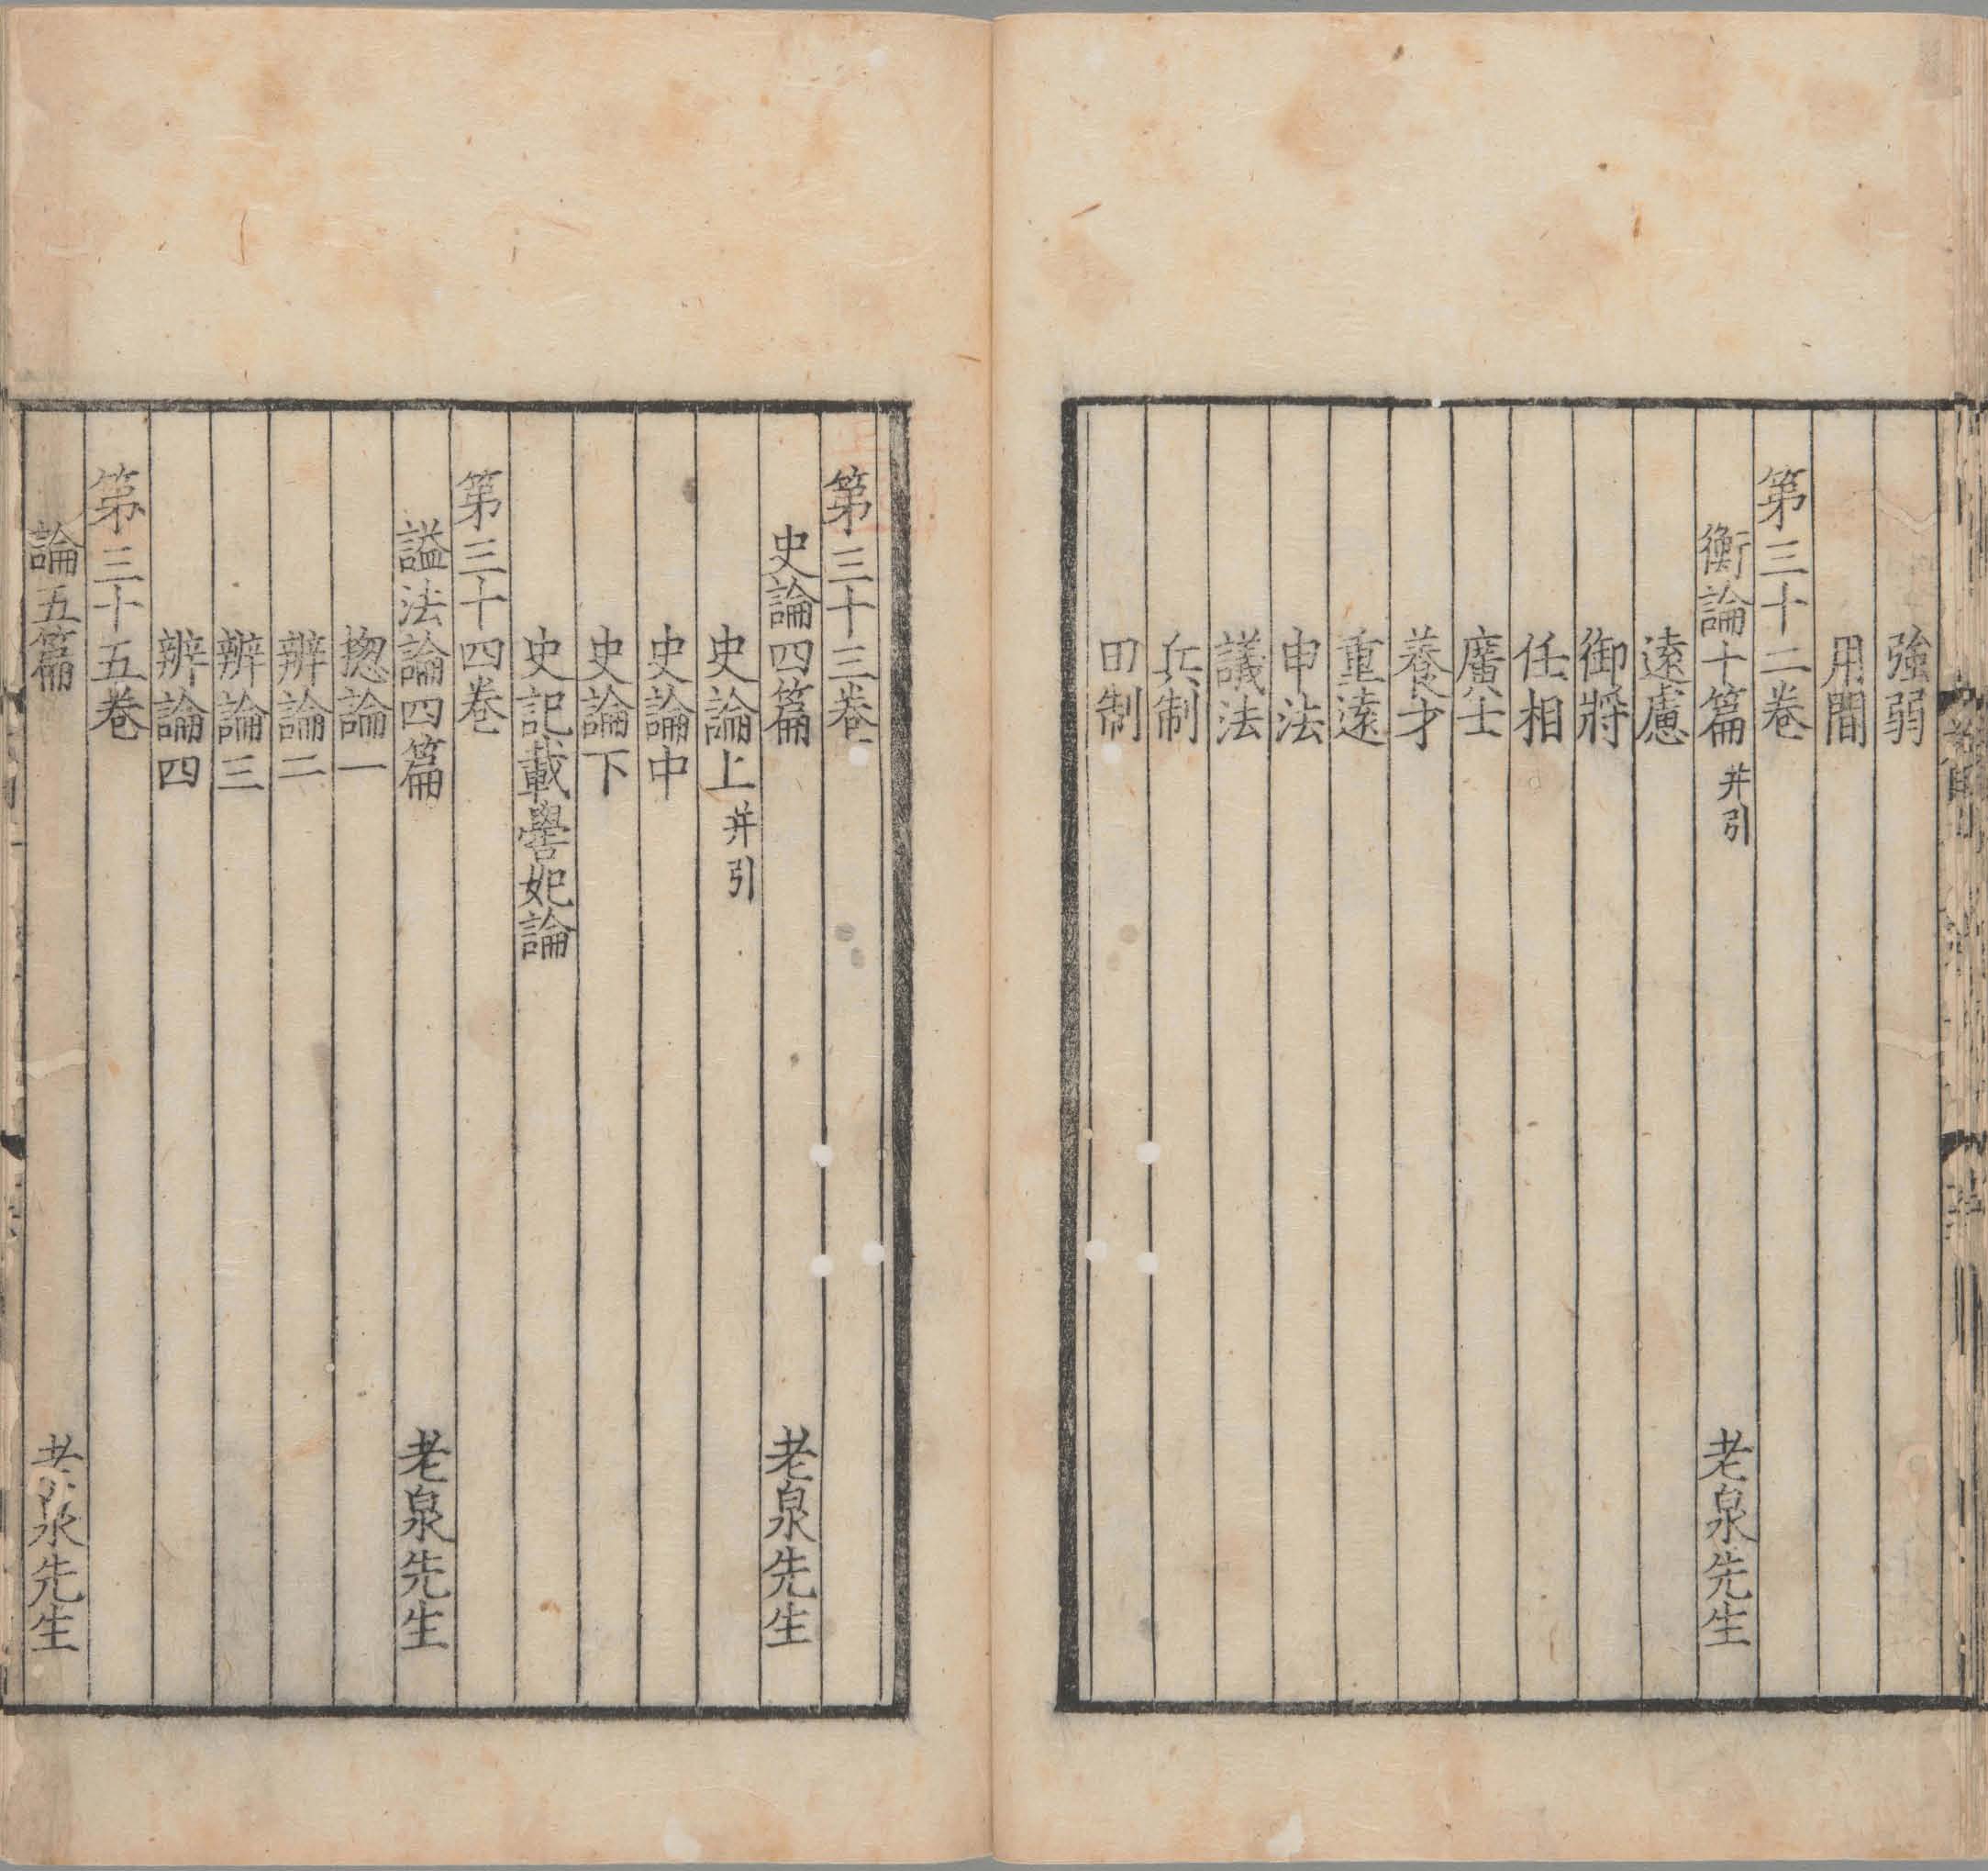 強弱
用間
第三十二卷
衡論十篇 并引 老泉先生
遠慮
御將
任相
廣士
養才
重遠
申法
議法
兵制
田制
第三十三卷
史論四篇 老泉先生
史論上 并引
史論中
史論下
史記載嚳妃論
第三十四卷
謚法論四篇 老泉先生
揔論一
辨論二
辨論三
辨論四
第三十五卷
論五篇 老泉先生